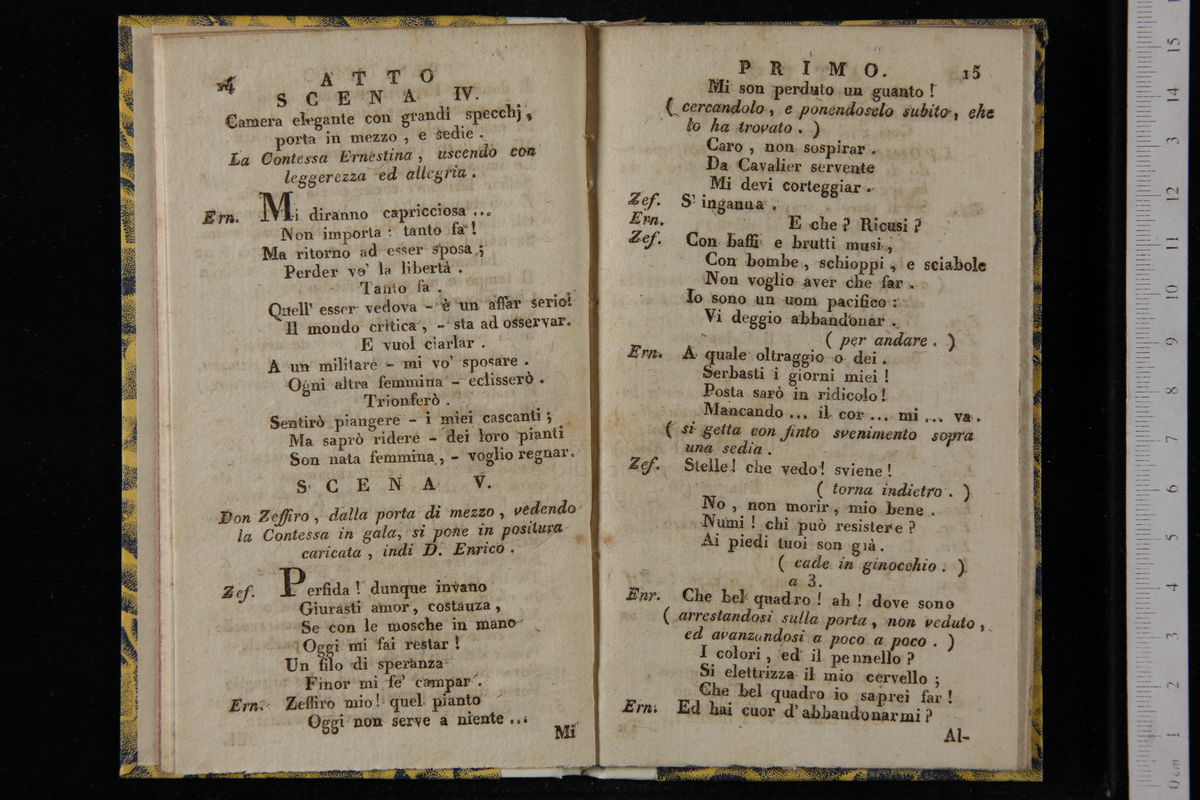 14
ATTO
SCENA IV.
Camera elegante con grandi specchj,
porta in mezzo, e sedie.
La Contessa Ernestina, uscendo con
leggerezza ed allegria.
Ern. Mi diranno capricciosa ...
Non importa: tanto fa!
Ma ritorno ad esser sposa;
Perder vo' la libertà.
Tanto fa.
Quell' esser vedova - è un affar serio!
Il mondo critica, - sta ad osservar.
E vuol ciarlar.
A un militare - mi vo' sposare.
Ogni altra femmina - eclisserò.
Trionferò.
Sentirò piangere - i miei cascanti;
Ma saprò ridere - dei loro pianti
Son nata femmina, - voglio regnar.
SCENA V.
Don Zeffiro, dalla porta di mezzo, vedendo
la Contessa in gala, si pone in positura
caricata, indi D. Enrico.
Zef. Perfida! dunque invano
Giurasti amor, costauza,
Se con le mosche in mano
Oggi mi fai restar!
Un filo di speranza
Finor mi fe' campar.
Ern. Zeffiro mio! quel pianto
Oggi non serve a niente ...
Mi
PRIMO. 15
Mi son perduto un guanto!
( cercandolo, e ponendoselo subito, che
lo ha trovato. )
Caro, non sospirar.
Da Cavalier servente
Mi devi corteggiar.
Zef. S' inganna.
Ern. E che? Ricusi?
Zef. Con baffi e brutti musi,
Con bombe, schioppi, e sciabole
Non voglio aver che far.
Io sono un uom pacifico:
Vi deggio abbandonar.
( per andare. )
Ern. A quale oltraggio o dei.
Serbasti i giorni miei!
Posta sarò in ridicolo!
Mancando ... il cor ... mi ... va.
( si getta con finto svenimento sopra
una sedia.
Zef. Stelle! che vedo! sviene!
( torna indietro. )
No, non morir, mio bene.
Numi! chi può resistere?
Ai piedi tuoi son già.
( cade in ginocchio. )
a 3.
Enr. Che bel quadro! ah! dove sono
( arrestandosi sulla porta, non veduto,
ed avanzandosi a poco a poco. )
I colori, ed il pennello?
Si elettrizza il mio cervello;
Che bel quadro io saprei far!
Ern. Ed hai cuor d'abbandonarmi?
Al-